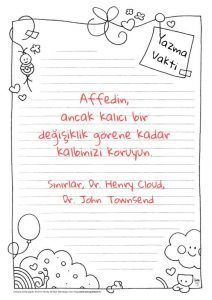 Yazma
Vakti
Affedin,
ancak kalıcı bir
değişiklik görene kadar
kalbinizi koruyun.
Sınırlar, Dr. Henry Cloud,
Dr. John Townsend